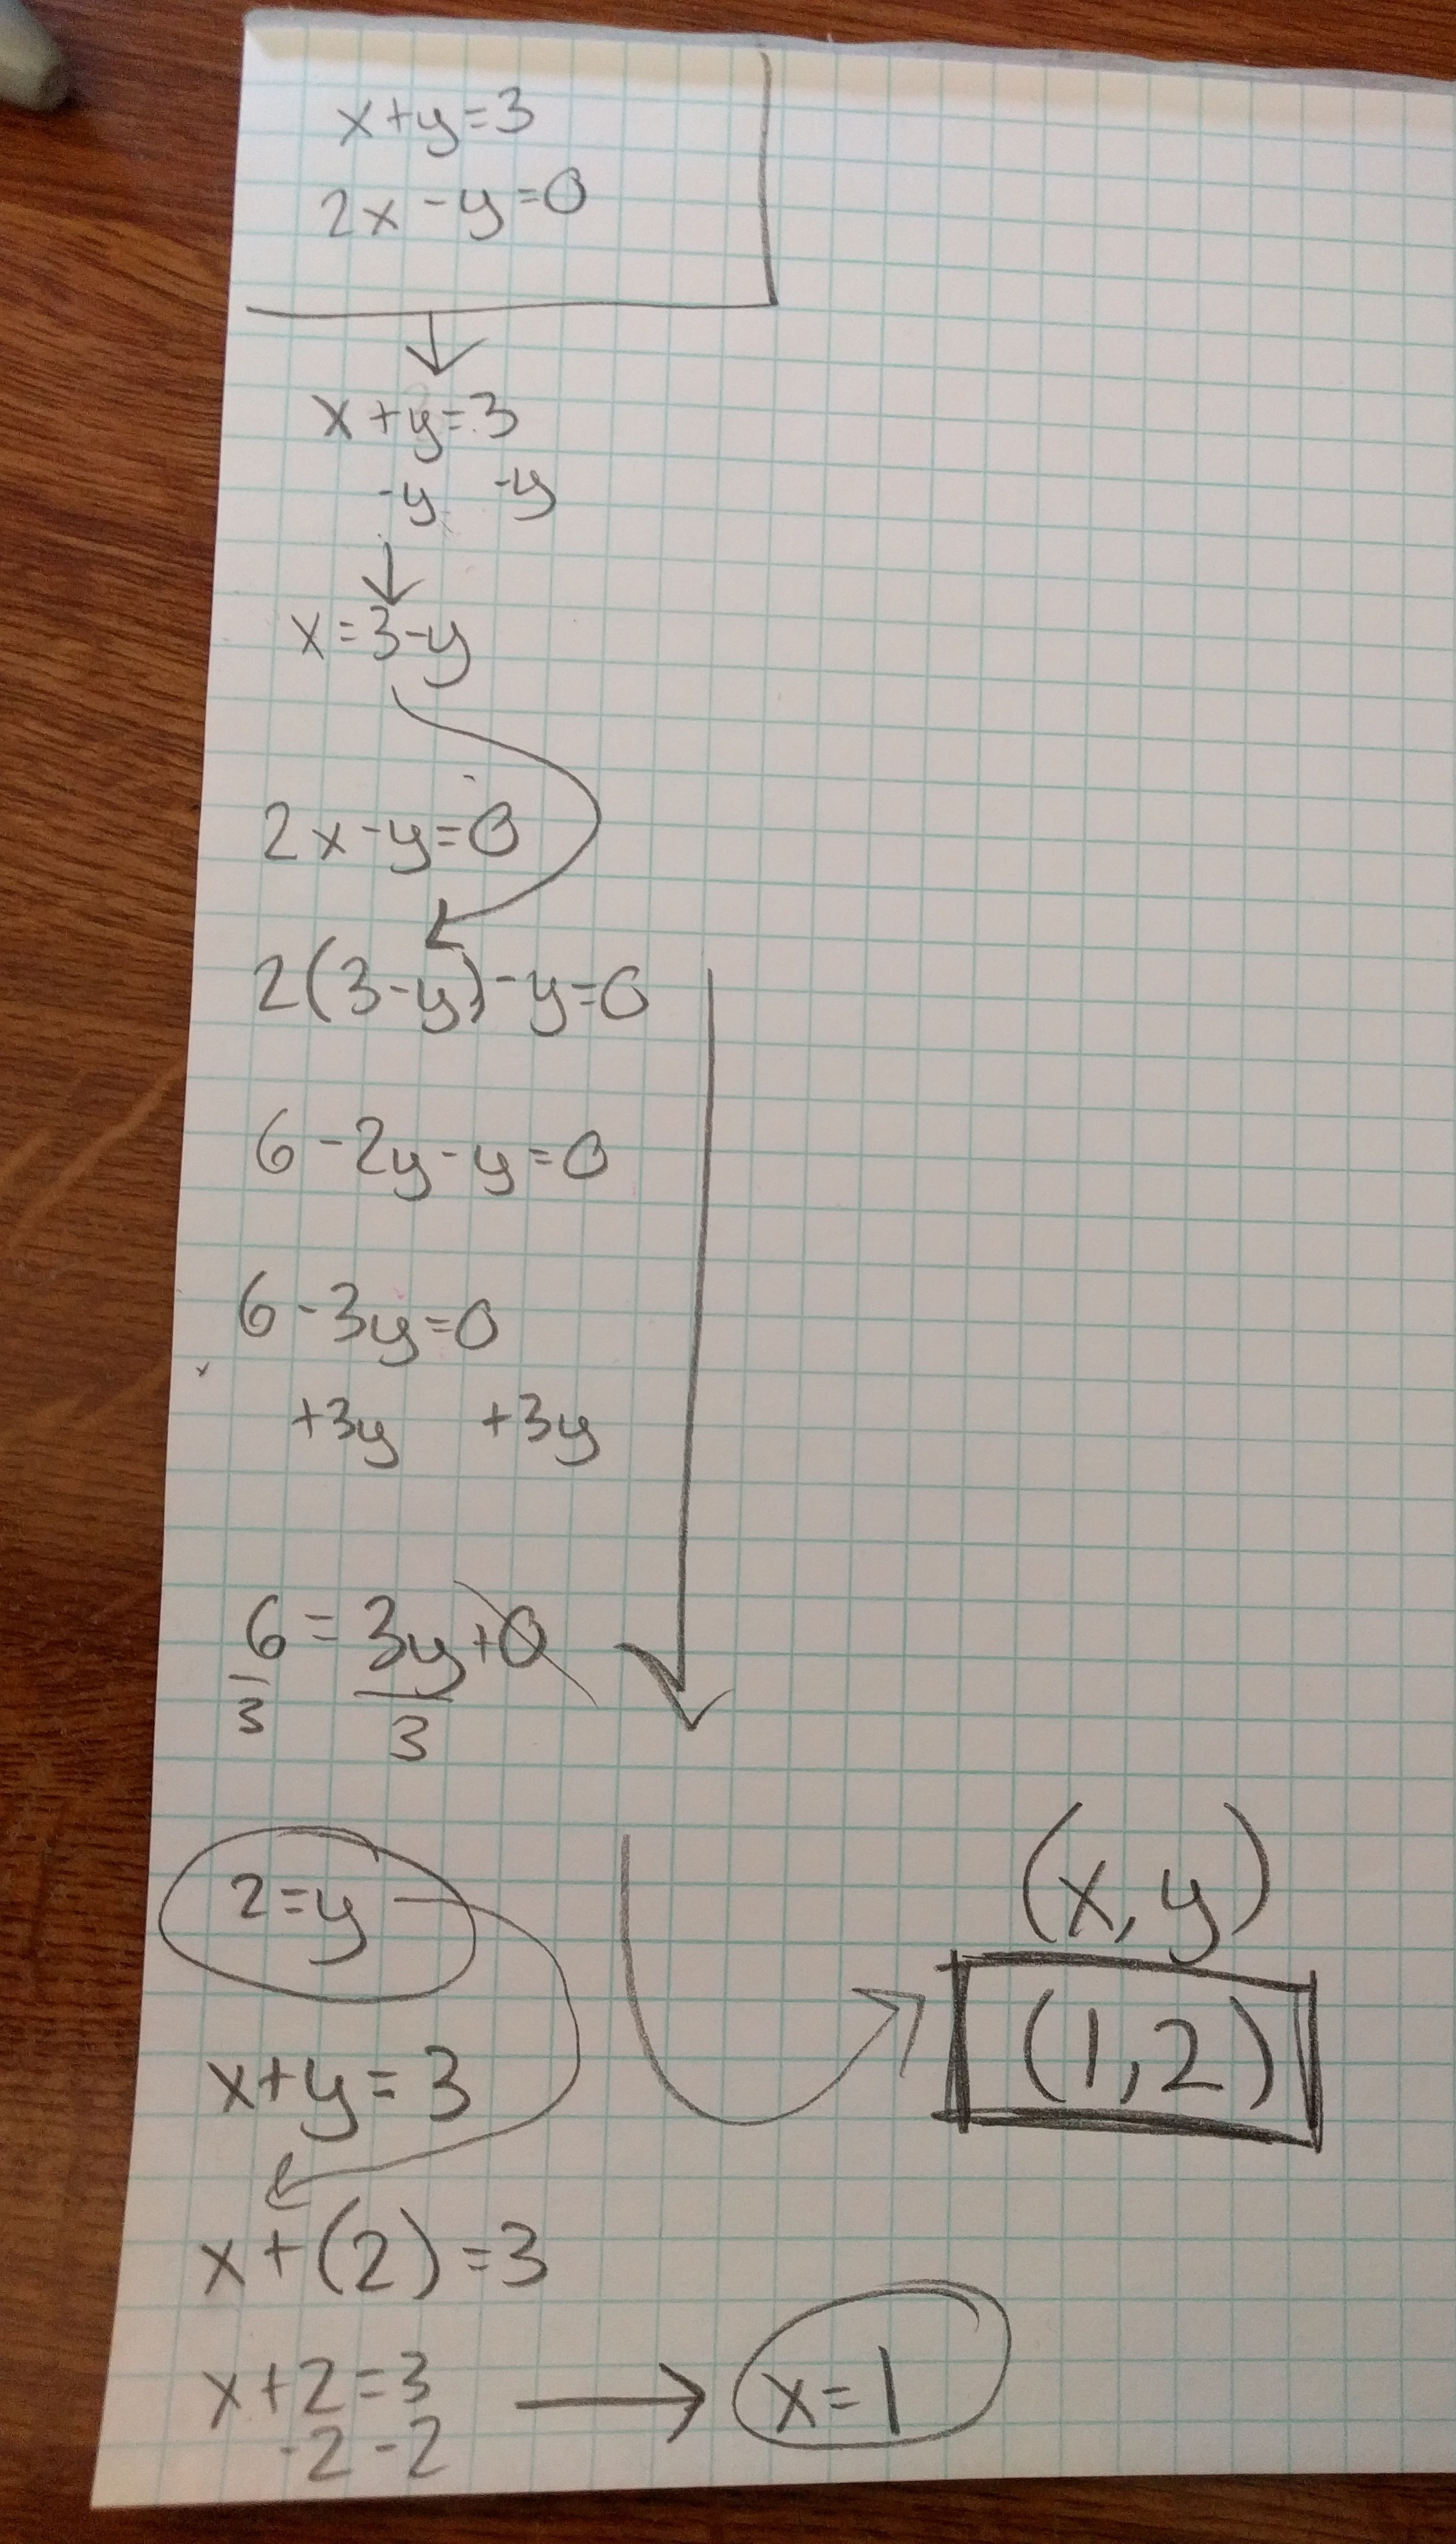 x+y=3
2x-y=0
x+y=3
-y -y
x=3-y
2x-y=0
2(3-y)-y=0
6-2y-y=0
6-3y=0
+3y +3y
6=3y+0
3 3
2=y
x+y=3
x+(2)=3
x+2=3
-2 -2
x=1
(x,y)
(1,2)